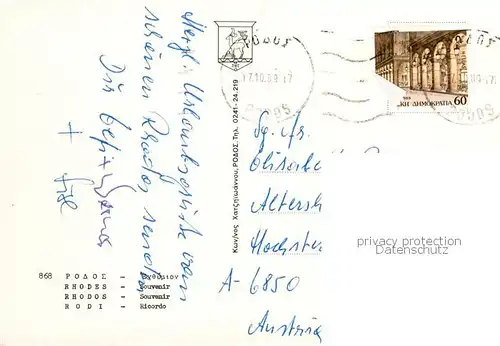 Herzl. Urlaubsgrüße vom
schönen Rhodos, senden
Dir
+
868 ΡΟΔΟΣ - Ενθύμιον
RHODES - Souvenir
RHODOS - Souvenir
RODI - Ricordo
Κων/νος Χατζηιωάννου, ΡΟΔΟΣ, Τηλ. 0241-24.219
ΡΟΔΟΣ
17.10.89.17
RODOS
ΚΗ ΔΗΜΟΚΡΑΤΙΑ 60
Sg. Fr.
Elisabe
Altersh
Hochster
A-6850
Austria
privacy protection
Datenschutz